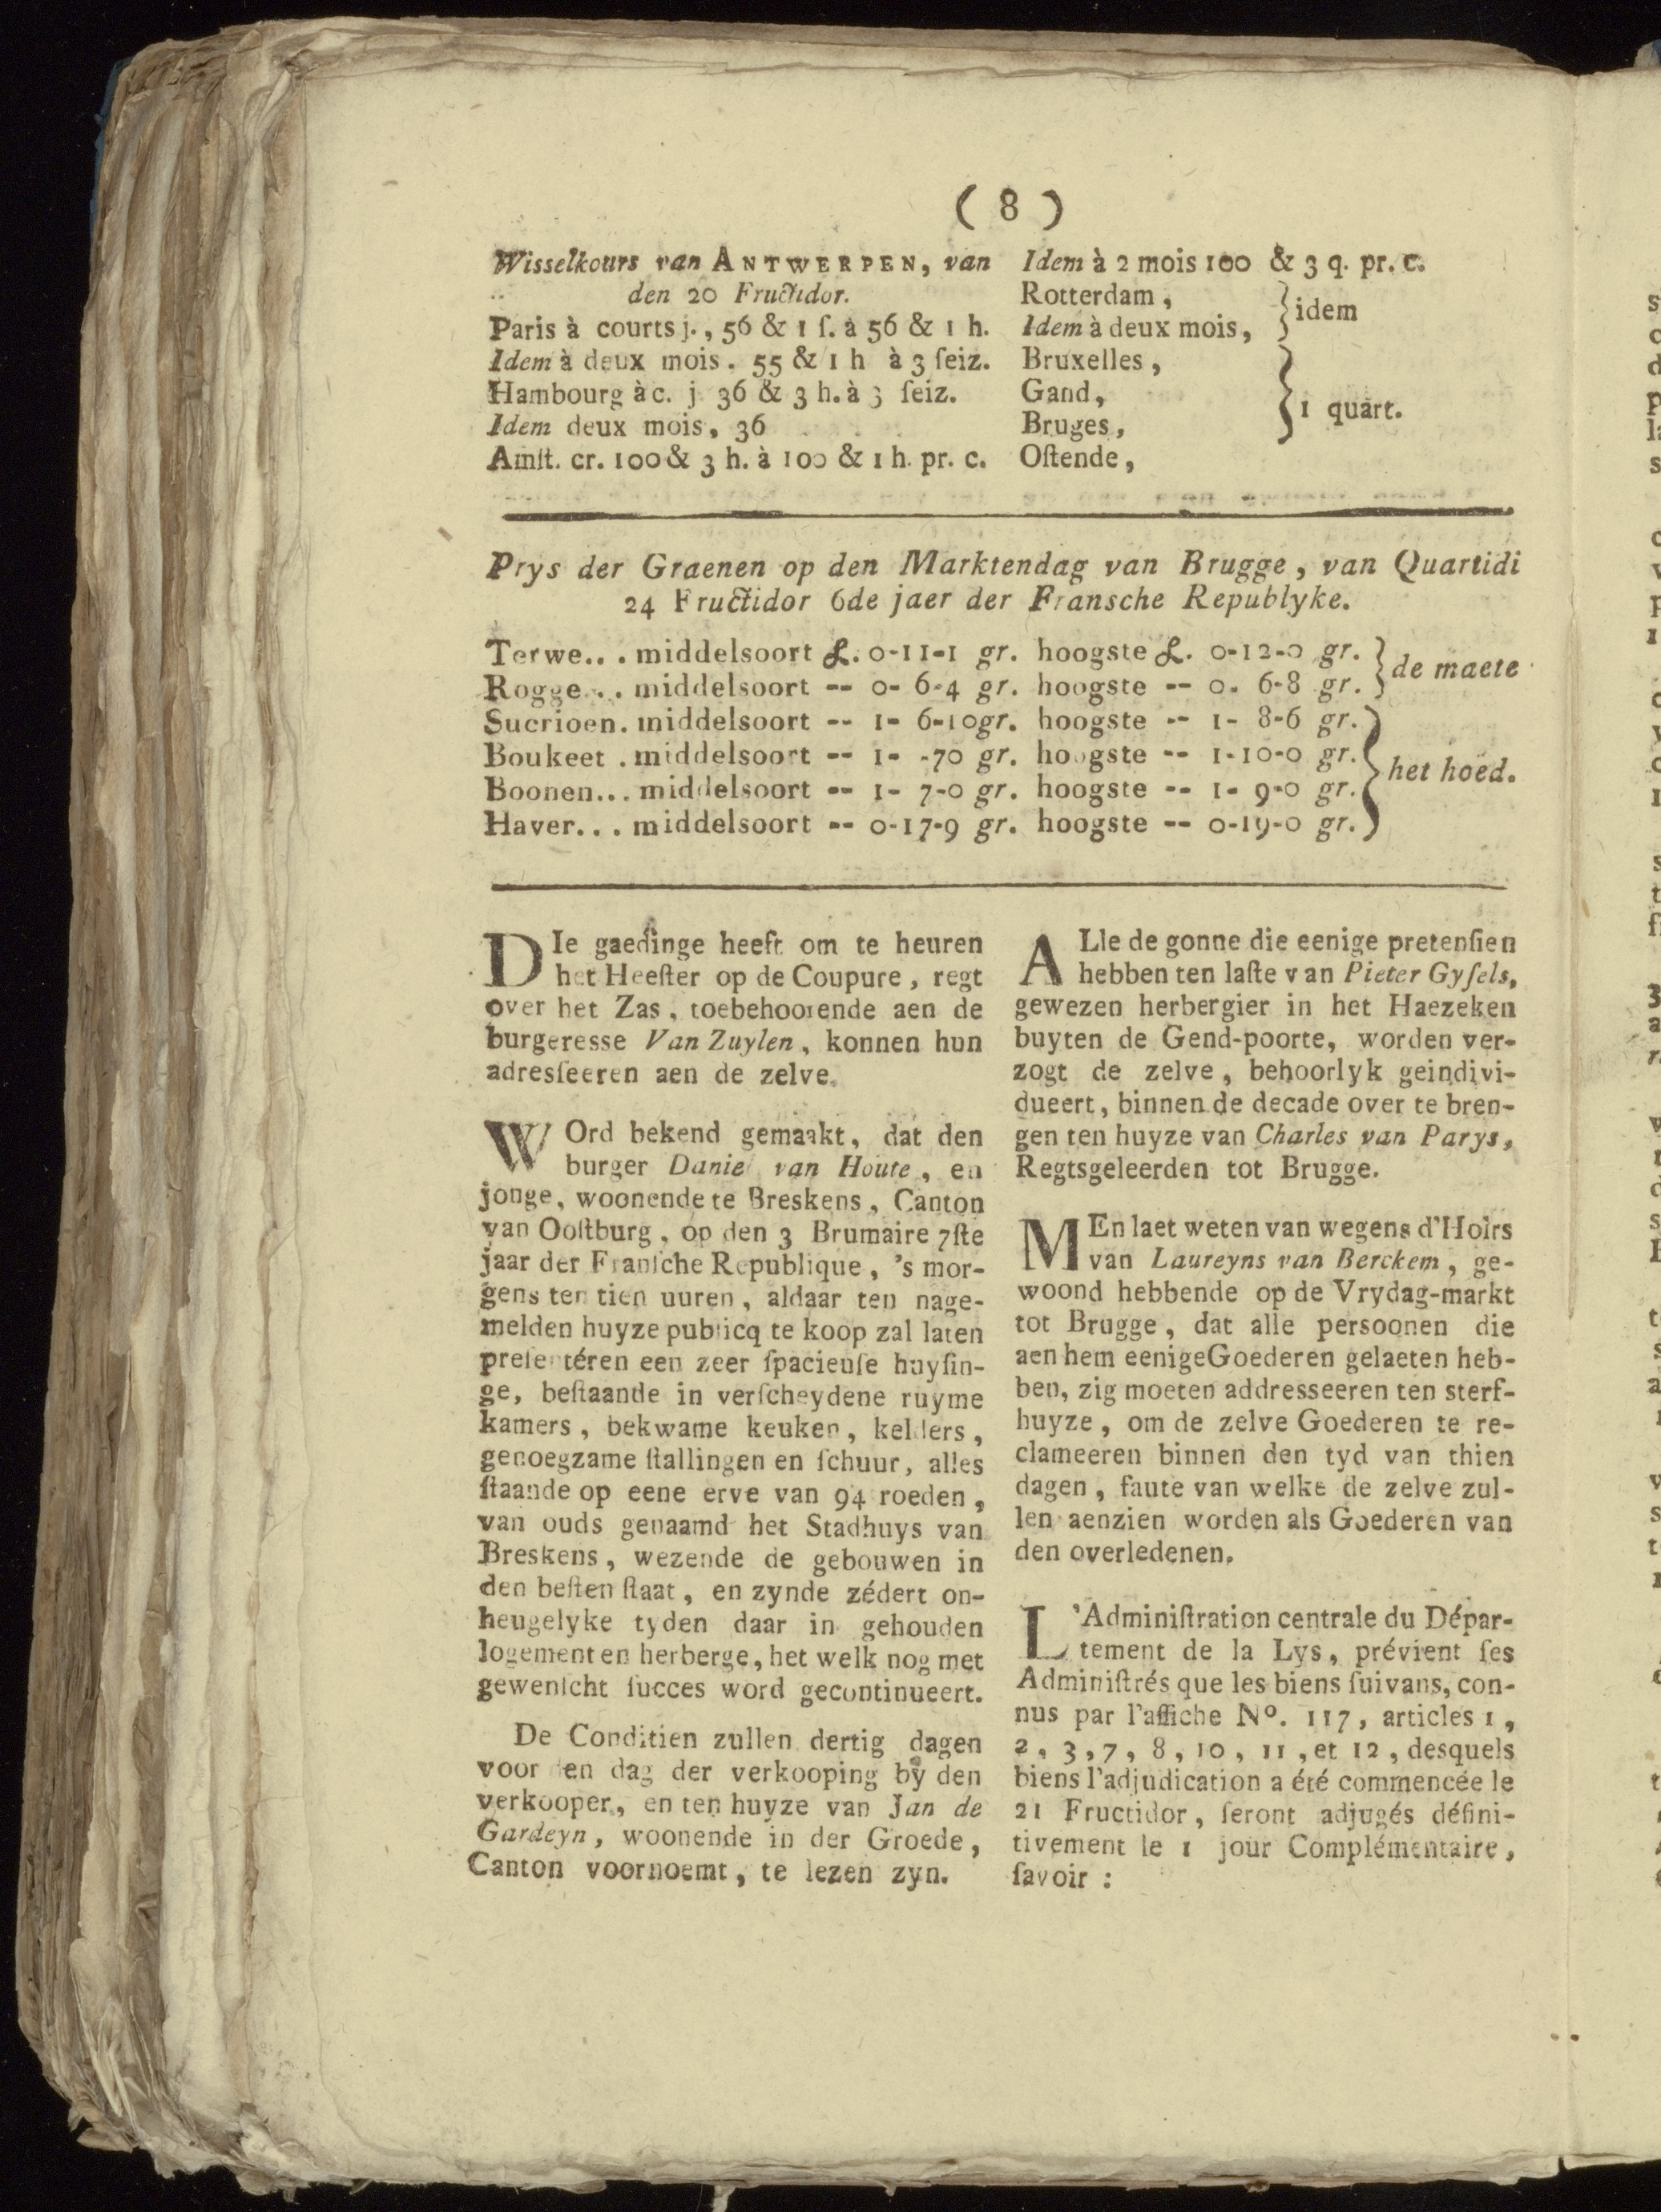 ( 8 )
Wisselkours van ANTWERPEN, van
den 20 Fructidor.
Paris à courts j., 56 & 1 ſ. à 56 & 1 h.
Idem à deux mois. 55 & 1 h à 3 ſeiz.
Hambourg à c. j 36 & 3 h. à 3 ſeiz.
Idem deux mois, 36
Amſt. cr. 100 & 3 h. à 100 & 1 h. pr. c.
Idem à 2 mois 100 & 3 q. pr. c.
Rotterdam,
Idem à deux mois, } idem
Bruxelles,
Gand,
Bruges, } 1 quart.
Oſtende,
Prys der Graenen op den Marktendag van Brugge, van Quartidi
24 Fructidor 6de jaer der Fransche Republyke.
Terwe... middelsoort £. 0-11-1 gr. hoogste £. 0-12-0 gr. } de maete
Rogge... middelsoort -- 0- 6-4 gr. hoogste -- 0- 6-8 gr.
Sucrioen. middelsoort -- 1- 6-10gr. hoogste -- 1- 8-6 gr.
Boukeet . middelsoort -- 1- -70 gr. hoogste -- 1-10-0 gr. } het hoed.
Boonen... middelsoort -- 1- 7-0 gr. hoogste -- 1- 9-0 gr.
Haver... middelsoort -- 0-17-9 gr. hoogste -- 0-19-0 gr.
DIe gaedinge heeft om te heuren
het Heeſter op de Coupure, regt
over het Zas, toebehoorende aen de
burgeresse Van Zuylen, konnen hun
adresſeeren aen de zelve.
WOrd bekend gemaakt, dat den
burger Daniel van Houte, en
jonge, woonende te Breskens, Canton
van Ooſtburg, op den 3 Brumaire 7ſte
jaar der Franſche Republique, 's mor-
gens ten tien uuren, aldaar ten nage-
melden huyze publicq te koop zal laten
preſentéren een zeer ſpacieuſe huyſin-
ge, beſtaande in verſcheydene ruyme
kamers, bekwame keuken, kelders,
genoegzame ſtallingen en ſchuur, alles
ſtaande op eene erve van 94 roeden,
van ouds genaamd het Stadhuys van
Breskens, wezende de gebouwen in
den beſten ſtaat, en zynde zédert on-
heugelyke tyden daar in gehouden
logement en herberge, het welk nog met
gewenſcht ſucces word gecontinueert.
De Conditien zullen dertig dagen
voor den dag der verkooping by den
verkooper, en ten huyze van Jan de
Gardeyn, woonende in der Groede,
Canton voornoemt, te lezen zyn.
ALle de gonne die eenige pretenſien
hebben ten laſte van Pieter Gyſels,
gewezen herbergier in het Haezeken
buyten de Gend-poorte, worden ver-
zogt de zelve, behoorlyk geindivi-
dueert, binnen de decade over te bren-
gen ten huyze van Charles van Parys,
Regtsgeleerden tot Brugge.
MEn laet weten van wegens d'Hoirs
van Laureyns van Berckem, ge-
woond hebbende op de Vrydag-markt
tot Brugge, dat alle persoonen die
aen hem eenigeGoederen gelaeten heb-
ben, zig moeten addresseeren ten sterf-
huyze, om de zelve Goederen te re-
clameeren binnen den tyd van thien
dagen, faute van welke de zelve zul-
len aenzien worden als Goederen van
den overledenen.
L'Adminiſtration centrale du Dépar-
tement de la Lys, prévient ſes
Adminiſtrés que les biens ſuivans, con-
nus par l'affiche Nº. 117, articles 1,
2, 3, 7, 8, 10, 11, et 12, desquels
biens l'adjudication a été commencée le
21 Fructidor, ſeront adjugés défini-
tivement le 1 jour Complémentaire,
ſavoir :